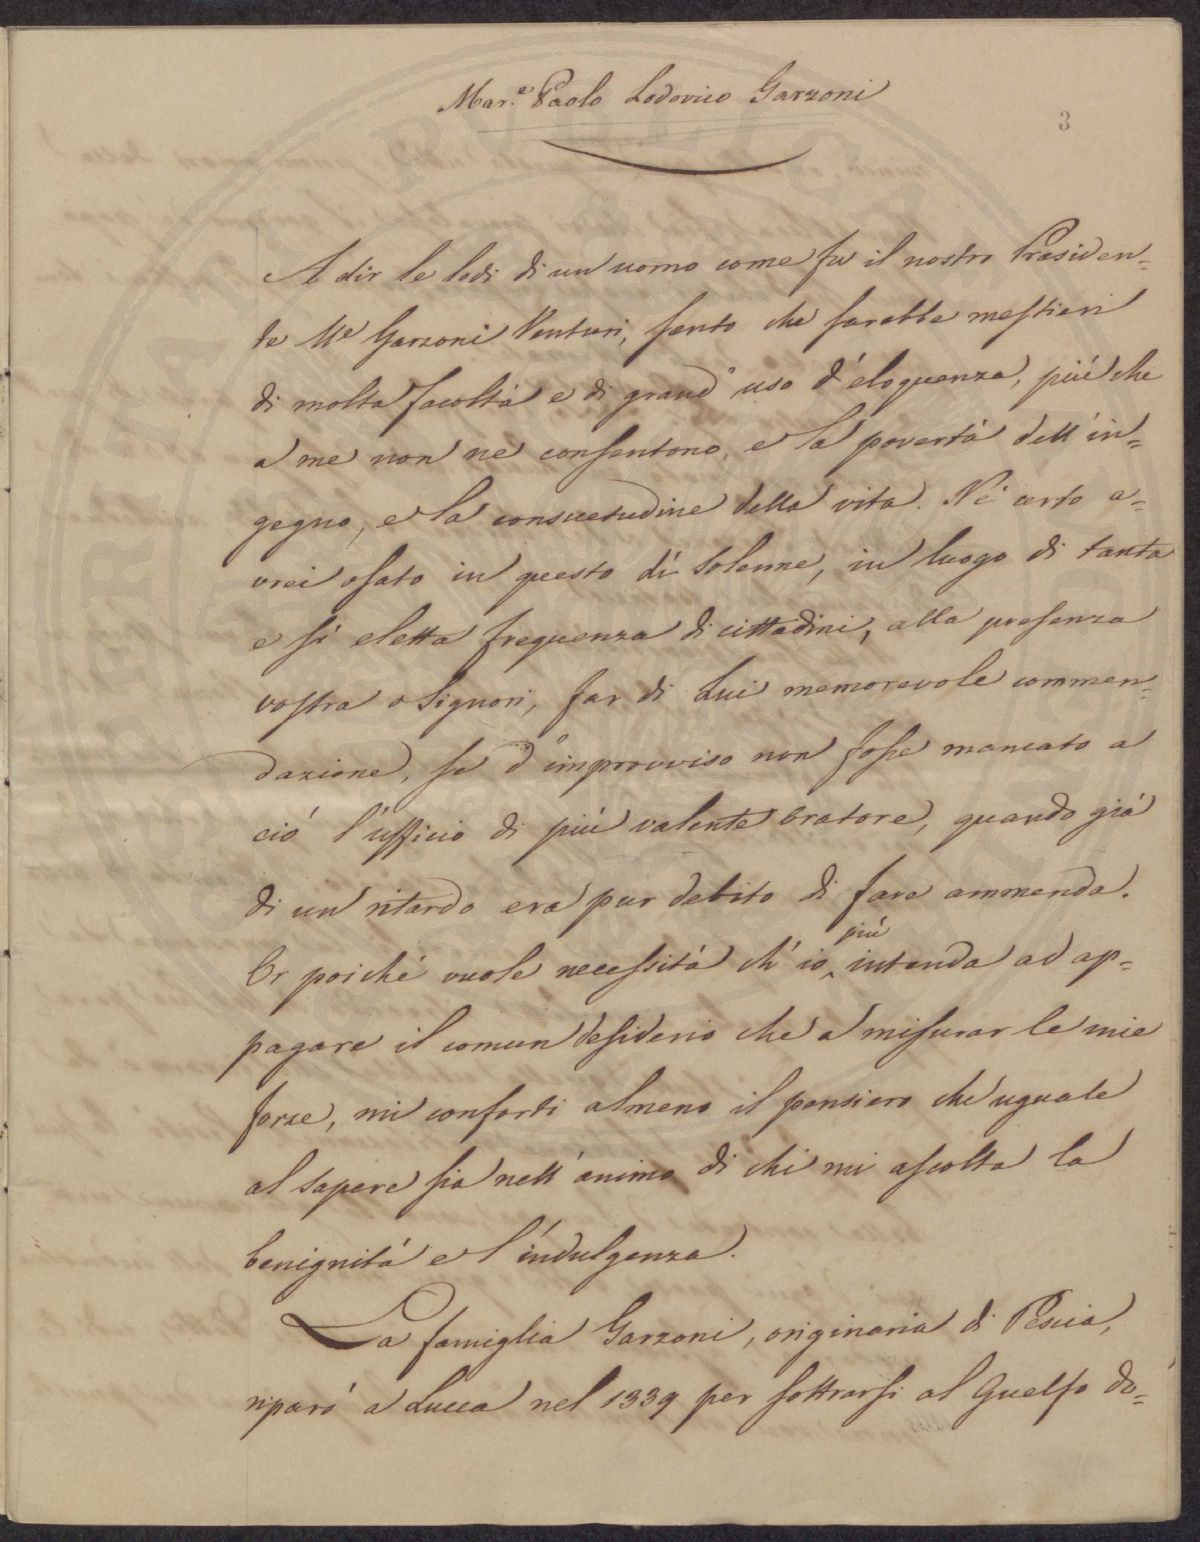 Mar.e Paolo Lodovico Garzoni
3
A dir le lodi di un uomo come fu il nostro Presiden=
te Me Garzoni Venturi, sento che sarebbe mestieri
di molta facoltà e di grand' uso d'eloquenza, più che
a me non ne consentono, e la povertà dell'in=
gegno, e la consuetudine della vita. Nè certo a=
vrei osato in questo dì solenne, in luogo di tanta
e sì eletta frequenza di cittadini, alla presenza
vostra o Signori, far di Lui memorevole commen=
dazione, se d'improvviso non fosse mancato a
ciò l'ufficio di più valente Oratore, quando già
di un ritardo era pur debito di fare ammenda.
Or poichè vuole necessità ch'io più intenda ad ap=
pagare il comun desiderio che a misurar le mie
forze, mi conforti almeno il pensiero che uguale
al sapere sia nell'animo di chi mi ascolta la
benignità e l'indulgenza.
La famiglia Garzoni, originaria di Pescia,
riparò a Lucca nel 1339 per sottrarsi al Guelfo do=